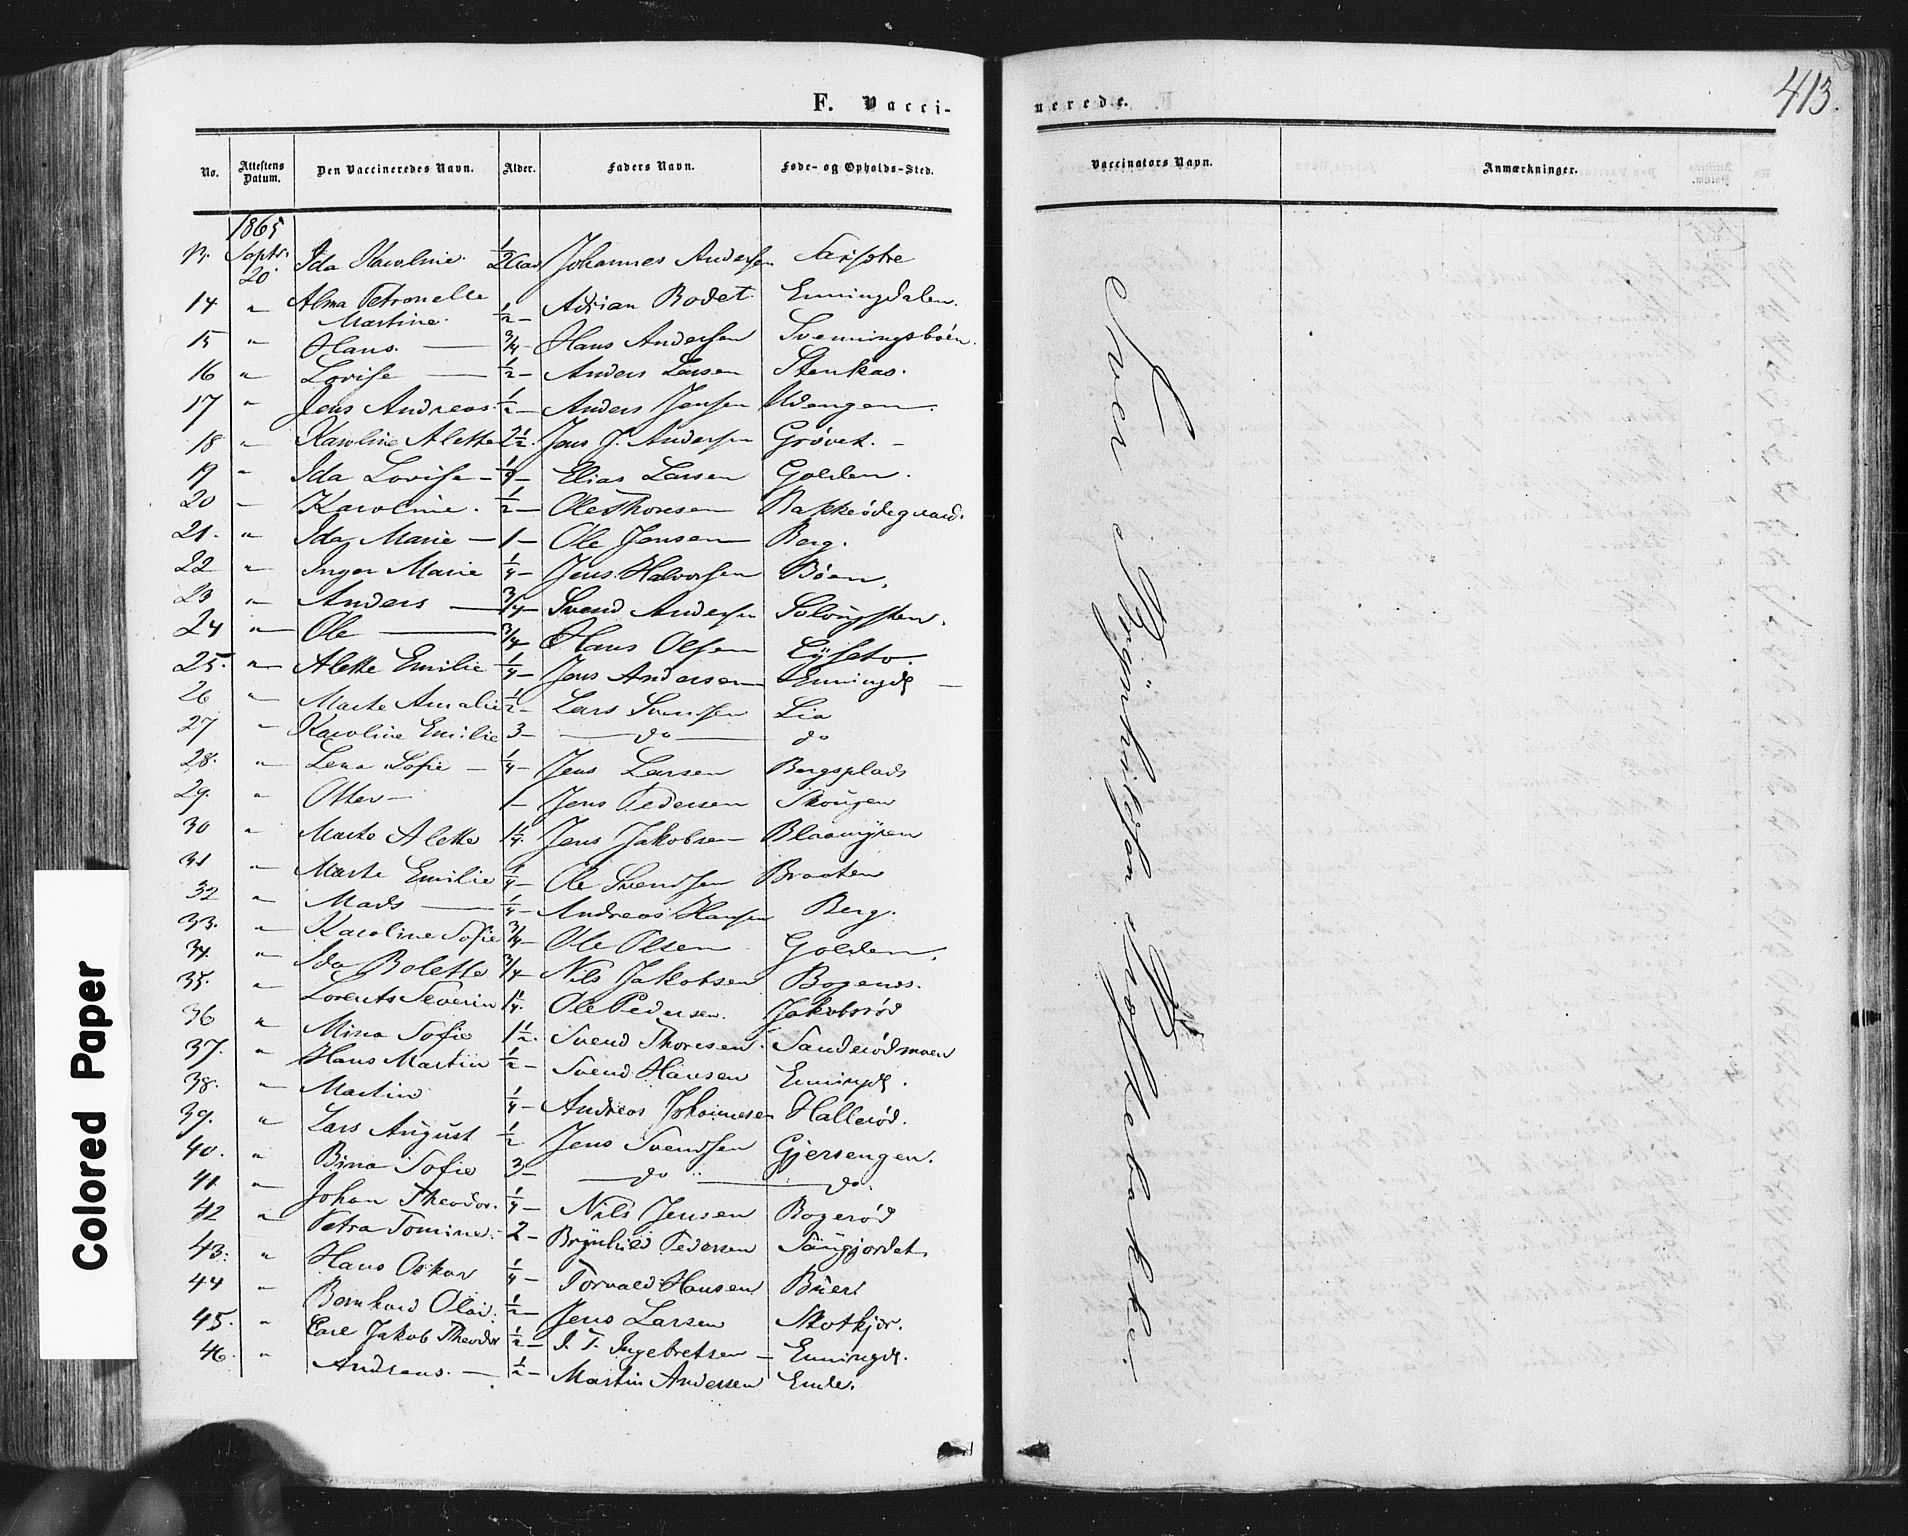 F. Vacci-
No. Attestens Datum. Den Vaccineredes Navn. Alder. Faders Navn. Føde- og Opholds-Sted.
1865
13. Septr. 20 Ida Karoline ½ Aar Johannes Andersen
14 " Alma Petronelle Martine ½ – Adrian Bodet Enningdalen.
15 " Hans. — ¾ – Hans Andersen Svenningsbøen.
16 " Lovise — ½ – Anders Larsen Stenkas.
17 " Jens Andreas ½ – Anders Jensen Udengen.
18 " Karoline Alette 2½. Jens J. Andersen Grøvet. –
19 " Ida Lovise – ¼ – Elias Larsen Golden.
20 – Karoline. ½ – Ole Thoresen Bakkeødegaard.
21. " Ida Marie – 1 – Ole Jensen Berg.
22 " Inger Marie ¼ – Jens Halvorsen Bøen.
23 " Anders — ¾ – Svend Andersen
24 " Ole — ¾ – Hans Olsen
25. " Alette Emilie ¼ – Jens Andersen Enningd. —
26 " Marte Amalie ½ – Lars Svendsen Lia
27 " Karoline Emilie 3 – — do — do
28. " Lena Sofie – ¼ – Jens Larsen Bergsplads
29. " Otter – 1 – Jens Pedersen Skougen
30 " Marte Alette 1¼. Jens Jakobsen Blaamyren
31 " Marte Emilie ¼ – Ole Svendsen Braaten
32 " Mads — ¼ – Andreas Hansen Berg.
33. " Karoline Sofie ¾ – Ole Olsen Golden.
34. " Ida Bolette ¾ – Nils Jakobsen Bogenes.
35. " Lorents Severin 1¼. Ole Pedersen. Jakobsrød
36 " Mina Sofie 1½. Svend Thoresen Sanderødmoen
37. " Hans Martin ½ – Svend Hansen Enningd.
38. " Martin ¼ – Andreas Johannesen Hallerød.
39. " Lars August ½ Jens Svendsen Gjersengen.
40. " Bina Sofie 3 – — do — do.
41 " Johan Theodor. ¼ – Nils Jensen Bogerød
42 " Petra Tomine. 2 – Brynhild Pedersen
43. " Hans Oskar ¼ – Torvald Hansen Buer
44 " Bernhard Olai. ½ – Jens Larsen Skotkjør.
45. " Carl Jakob Theodor ½ – I. T. Ingebretsen – Enningd.
46. " Andreas. — ½ – Martin Andersen Ende.
nerede.
413.
Vaccinators Navn. Anmærkninger.
Iver Brynhildsen Bakkebakke.
Colored Paper